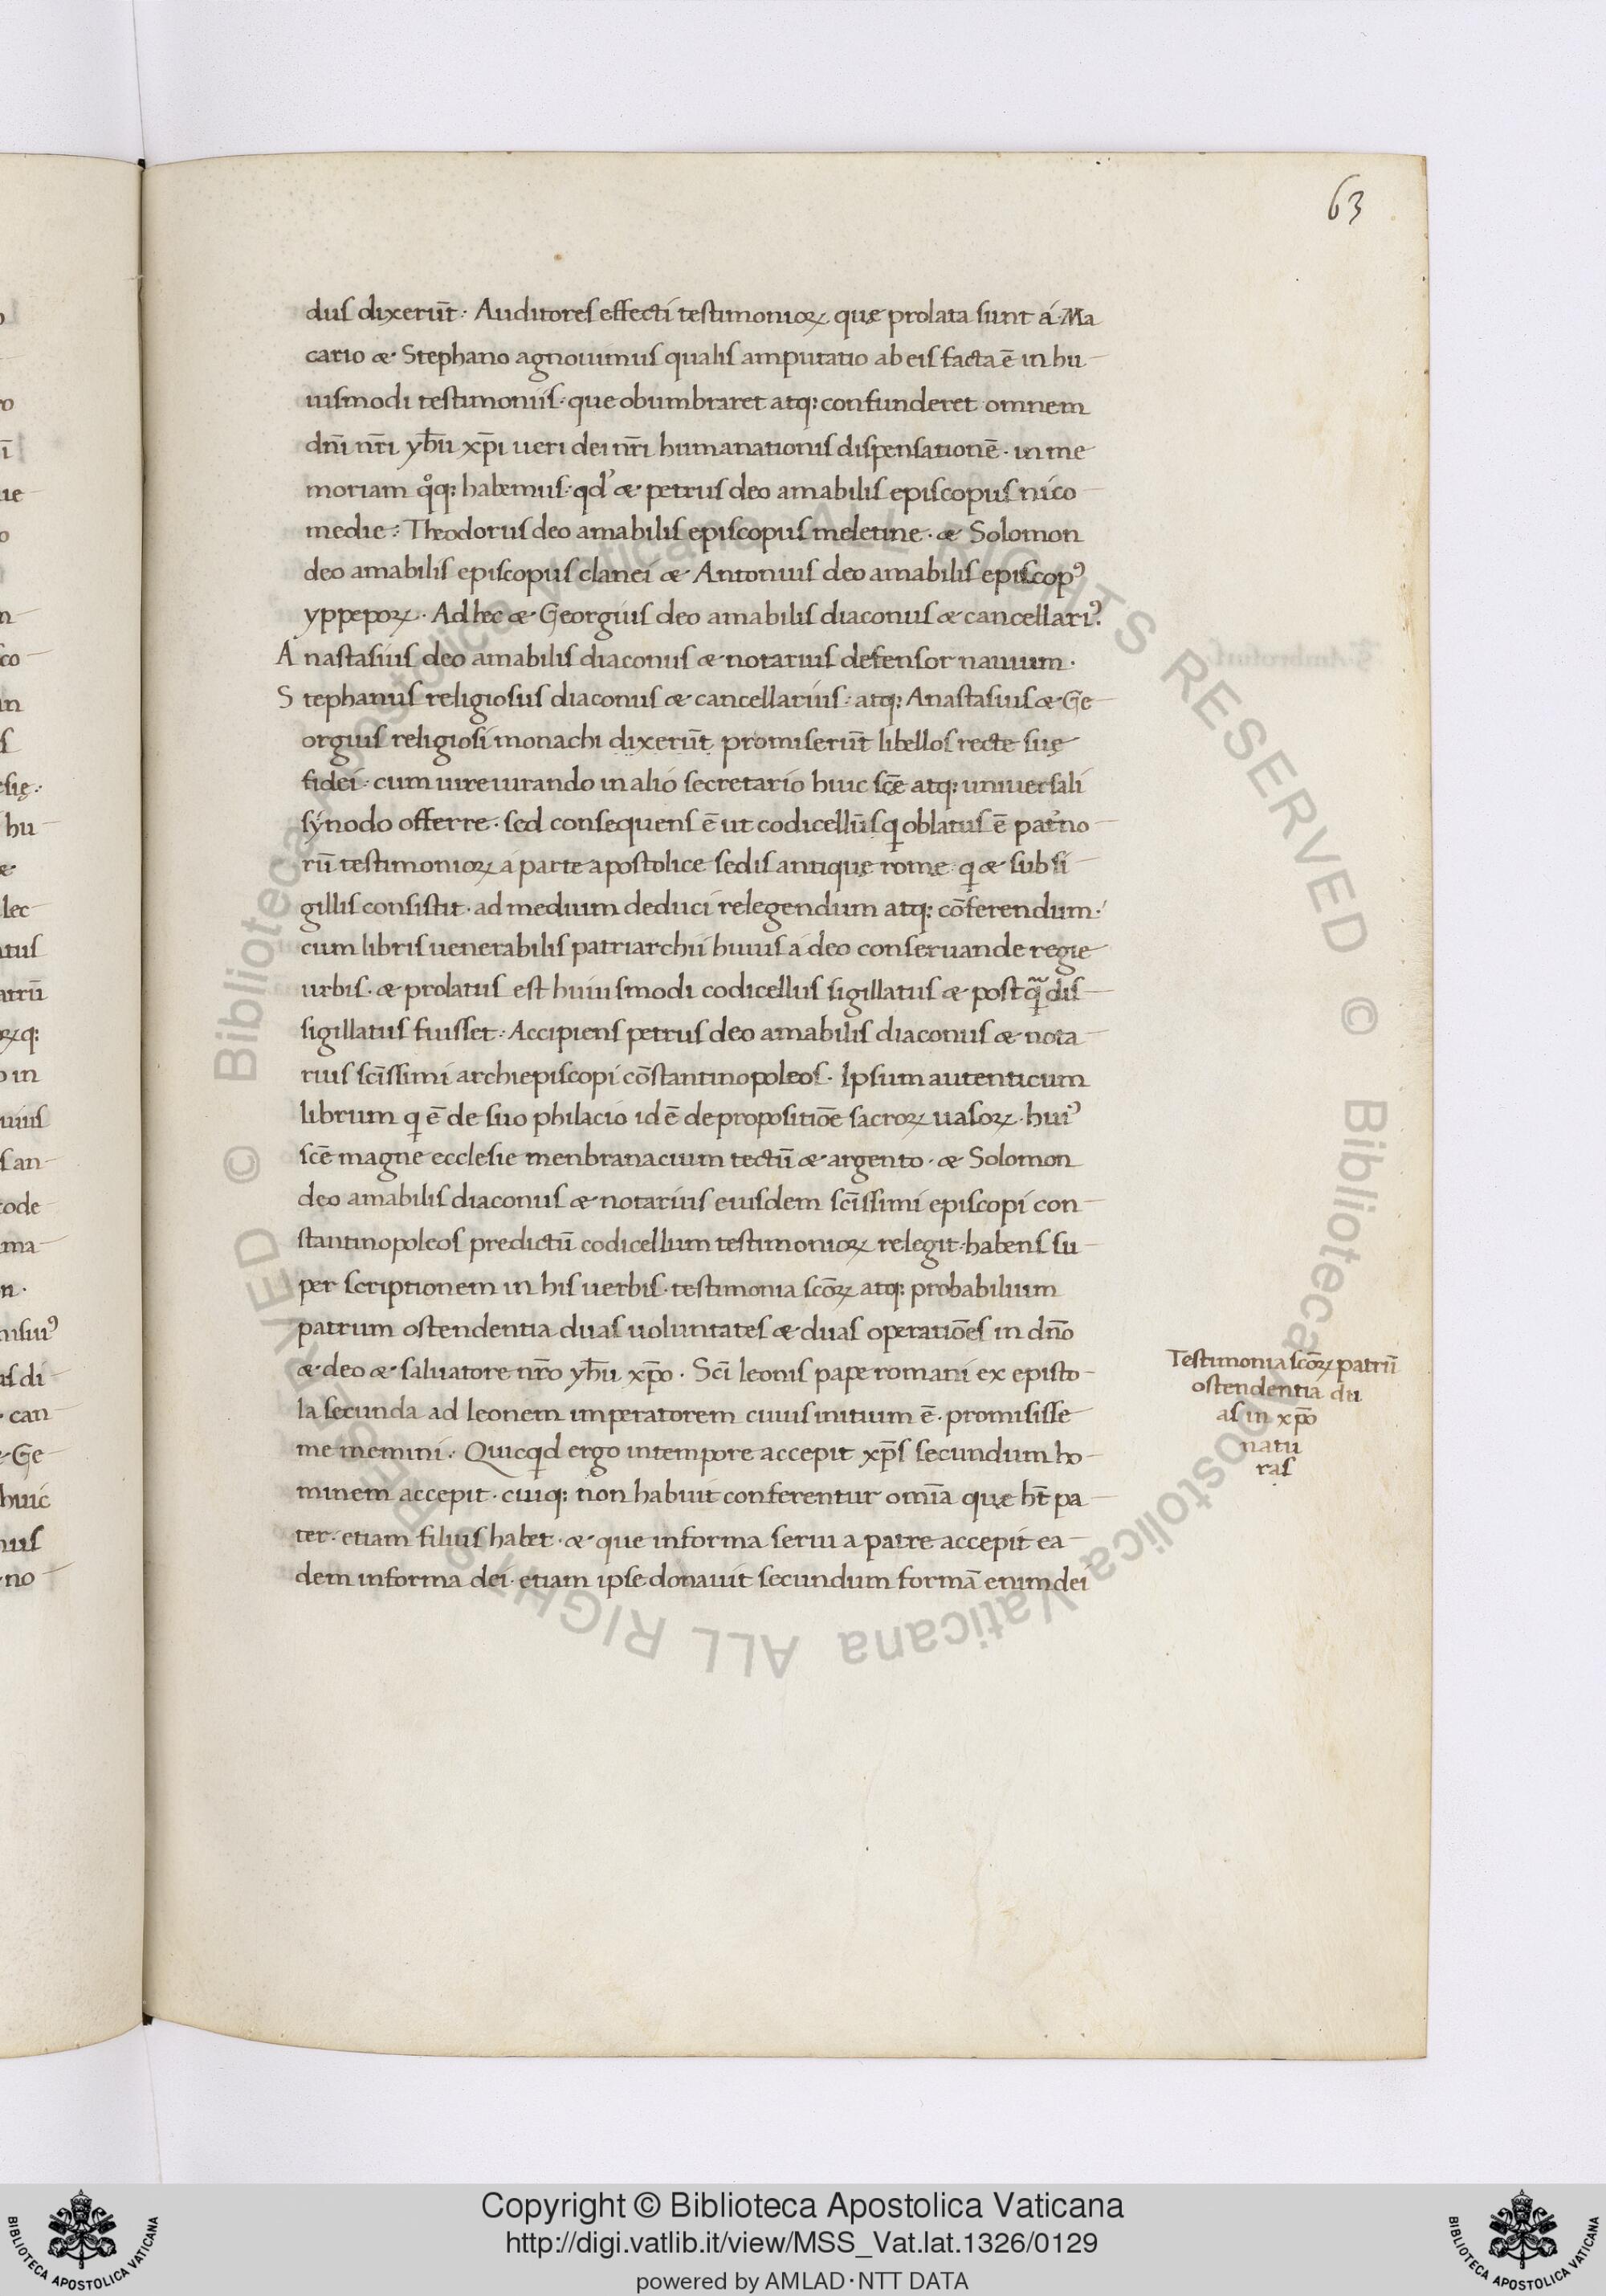 63
dus dixerūt. Auditores effecti testimonioꝝ quę prolata sunt á Ma
cario & Stephano agnouimus qualis amputatio ab eis facta ē in hu
iusmodi testimoniis. que obumbraret atq: confunderet omnem
dn̄i nr̄i yħu xp̄i ueri dei nr̄i humanationis dispensationē. in me
moriam qͦq: habemus. qd' & petrus deo amabilis episcopus nico
medie: Theodorus deo amabilis episcopus meletine. & Solomon
deo amabilis episcopus clanei & Antonius deo amabilis episcopꝰ
yppepoꝝ. Ad hec & Georgius deo amabilis diaconus & cancellariꝰ.
Anastasius deo amabilis diaconus & notarius defensor nauium.
Stephanus religiosus diaconus & cancellarius: atq: Anastasius & Ge
orgius religiosi monachi dixerūt promiserūt libellos recte suę
fidei. cum iureiurando in alio secretario huic scē atq: uniuersali
synodo offerre. sed consequens ē ut codicellūs ꝗ oblatus ē pat'no
rū testimonioꝝ a parte apostolice sedis antiquę romę. ꝗ & sub si
gillis consistit. ad medium deduci relegendum atq: cōferendum.
cum libris uenerabilis patriarchii huius a deo conseruande regie
urbis. & prolatus est huiusmodi codicellus sigillatus & postꝗ̃ dis
sigillatus fuisset. Accipiens petrus deo amabilis diaconus & nota
rius scīssimi archiepiscopi cōstantinopoleos. Ipsum autenticum
librum ꝗ ē de suo philacio id ē de propositiōe sacroꝝ uasoꝝ. huiꝰ
scē magne ecclesie menbranacium tectū & argento. & Solomon
deo amabilis diaconus & notarius eiusdem scīssimi episcopi con
stantinopoleos predictū codicellum testimonioꝝ relegit. habens su
per scriptionem in his uerbis. testimonia scōꝝ atq: probabilium
patrum ostendentia duas uoluntates & duas operatiōes in dn̄o
& deo & saluatore nr̄o yħu xp̄o. Scī leonis pape romani ex episto
la secunda ad leonem imperatorem cuius initium ē. promisisse
me memini. Quicꝗd ergo in tempore accepit xp̄s secundum ho
minem accepit. cuiq: non habuit conferentur om̄ia quę ħt pa
ter. etiam filius habet. & que in forma serui a patre accepit ea
dem in forma dei. etiam ipse donauit secundum formā enim dei
Testimonia scōꝝ patrū
ostendentia du
as in xp̄o
natu
ras
© Biblioteca Apostolica Vaticana ALL RIGHTS RESERVED
© Biblioteca Apostolica Vaticana ALL RIGHTS RESERVED
Copyright © Biblioteca Apostolica Vaticana
http://digi.vatlib.it/view/MSS_Vat.lat.1326/0129
powered by AMLAD·NTT DATA
BIBLIOTECA APOSTOLICA VATICANA
BIBLIOTECA APOSTOLICA VATICANA